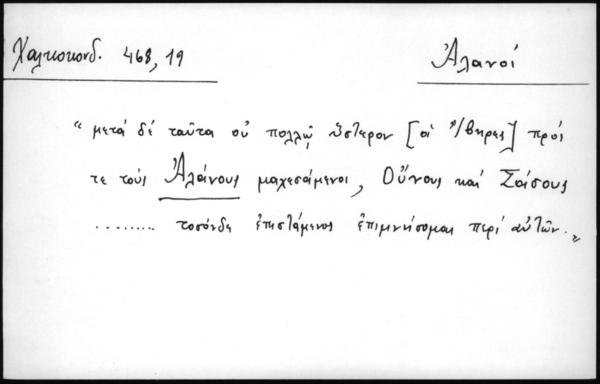 Χαλκοκονδ. 468, 19
Ἀλανοί
"μετά δέ ταῦτα οὐ πολλῷ ὕστερον [οἱ Ἴβηρες] πρός
τε τούς Ἀλάνους μαχεσάμενοι, Οὔνους καί Σάσους
......... τοσόνδε ἐπιστάμενος ἐπιμνήσομαι περί αὐτῶν."